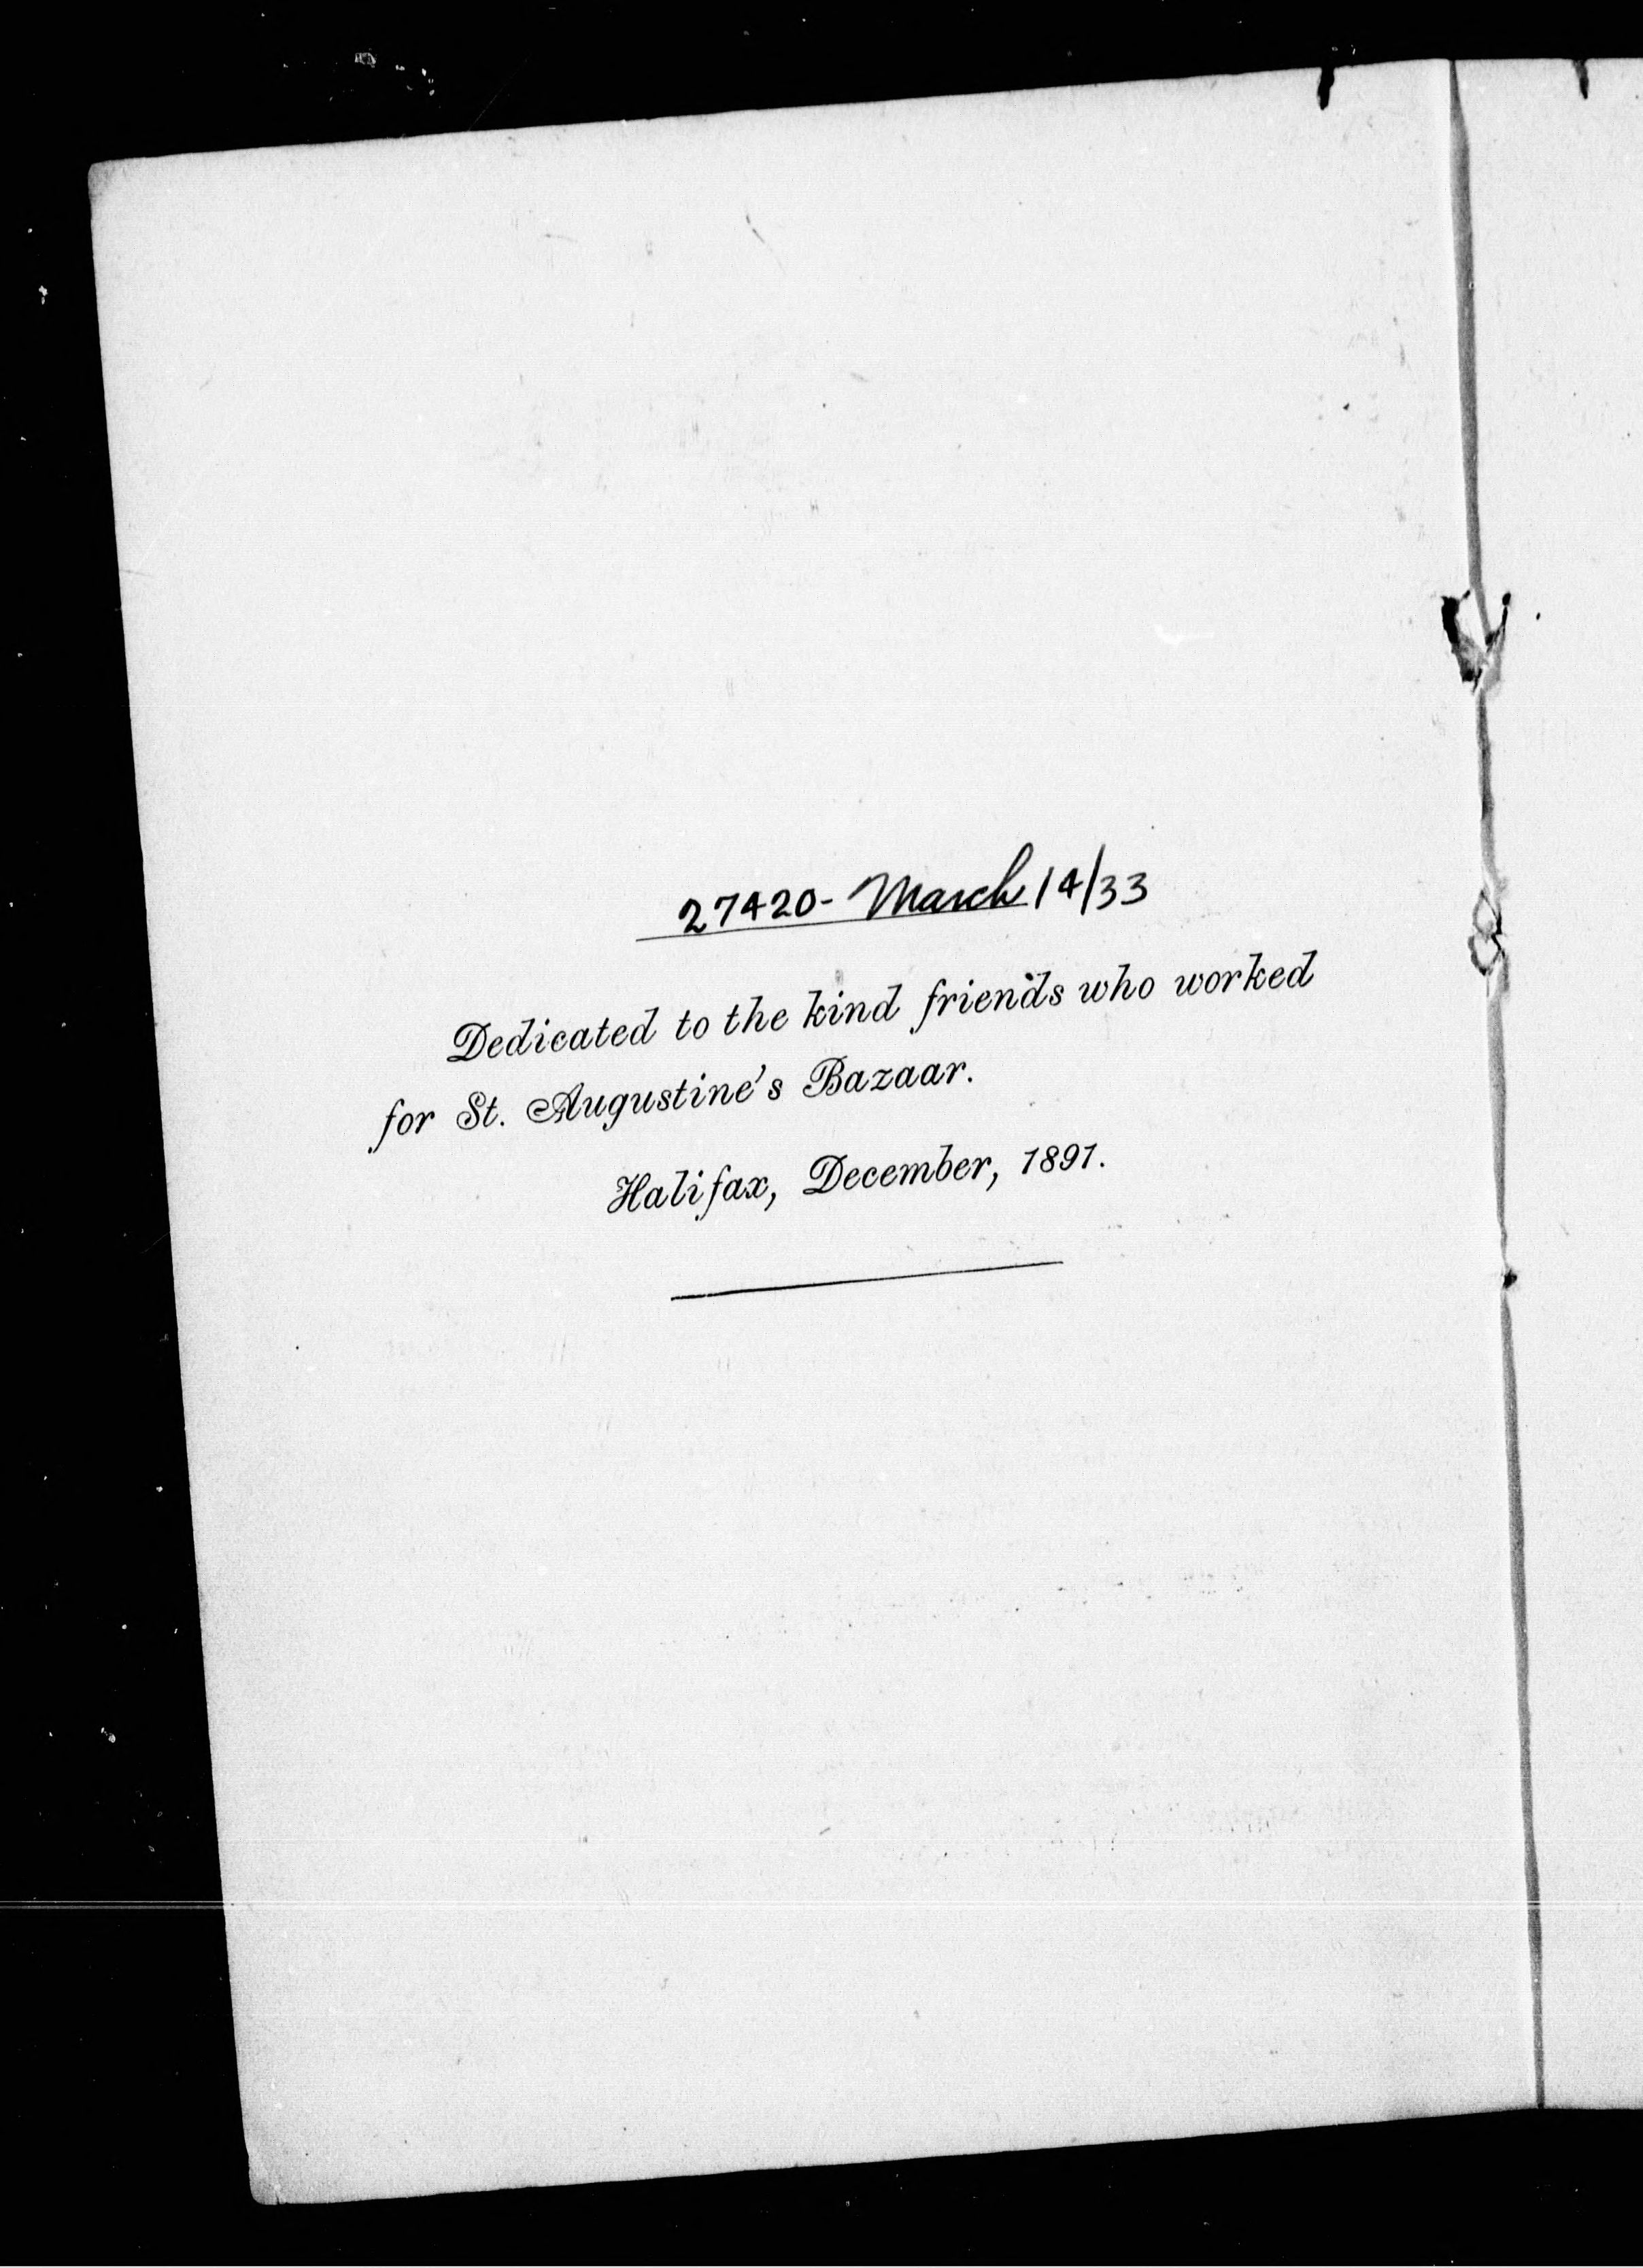 27420- March 14/33
Dedicated to the kind friends who worked
for St. Augustine's Bazaar.
Halifax, December, 1891.